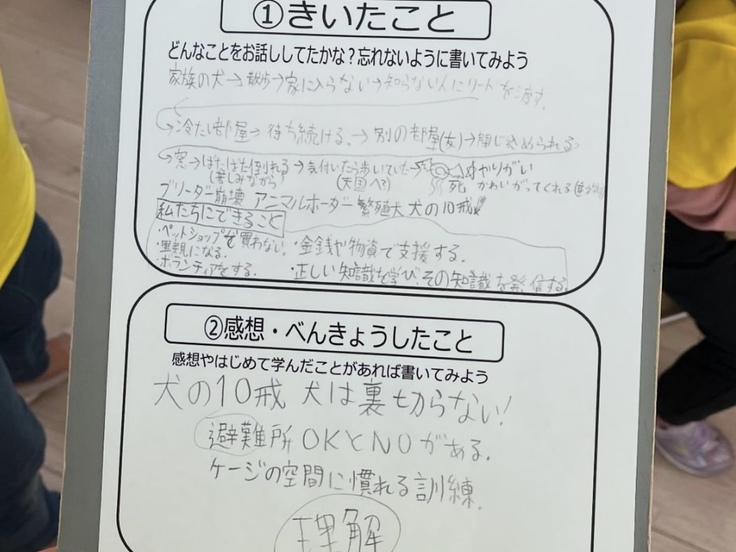 ①きいたこと
どんなことをお話ししてたかな？忘れないように書いてみよう
家族の犬→散歩→家に入らない→知らない人にリードを渡す。
→冷たい部屋→待ち続ける。→別の部屋(女)→閉じ込められる
→窓→ばたばた倒れる→気付いたら歩いていた→
(苦しみながら) (天国へ?) 死 かわいがってくれる
ブリーダー崩壊 アニマルホーダー 繁殖犬 犬の10戒
私たちにできること
・ペットショップで買わない。 ・金銭や物資で支援する。
・里親になる。
・ボランティアをする。 ・正しい知識を学び、その知識を発信する。
②感想・べんきょうしたこと
感想やはじめて学んだことがあれば書いてみよう
犬の10戒 犬は裏切らない!
避難所 OKとNOがある。
ケージの空間に慣れる訓練。
理解